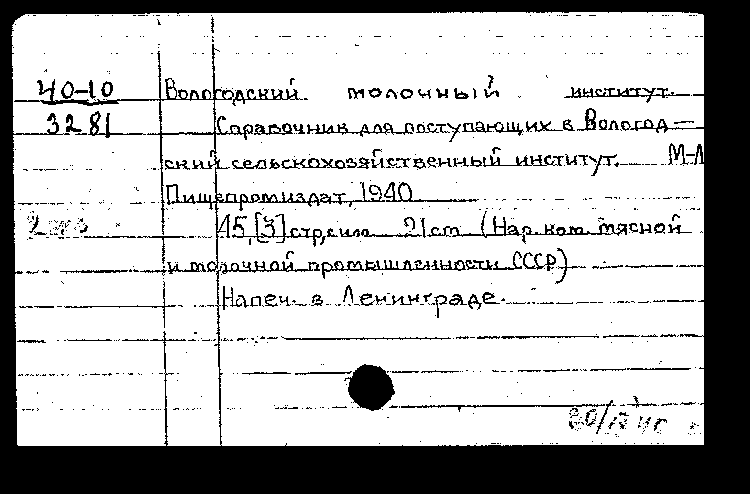 40-10 Вологодский молочный институт.
3281 Справочник для поступающих в Вологод-
ский сельскохозяйственный институт. М-Л
Пищепромиздат, 1940
2 экз 45, [3] стр, силл 21 см (Нар. ком. мясной
и молочной промышленности СССР)
Напеч. в Ленинграде.